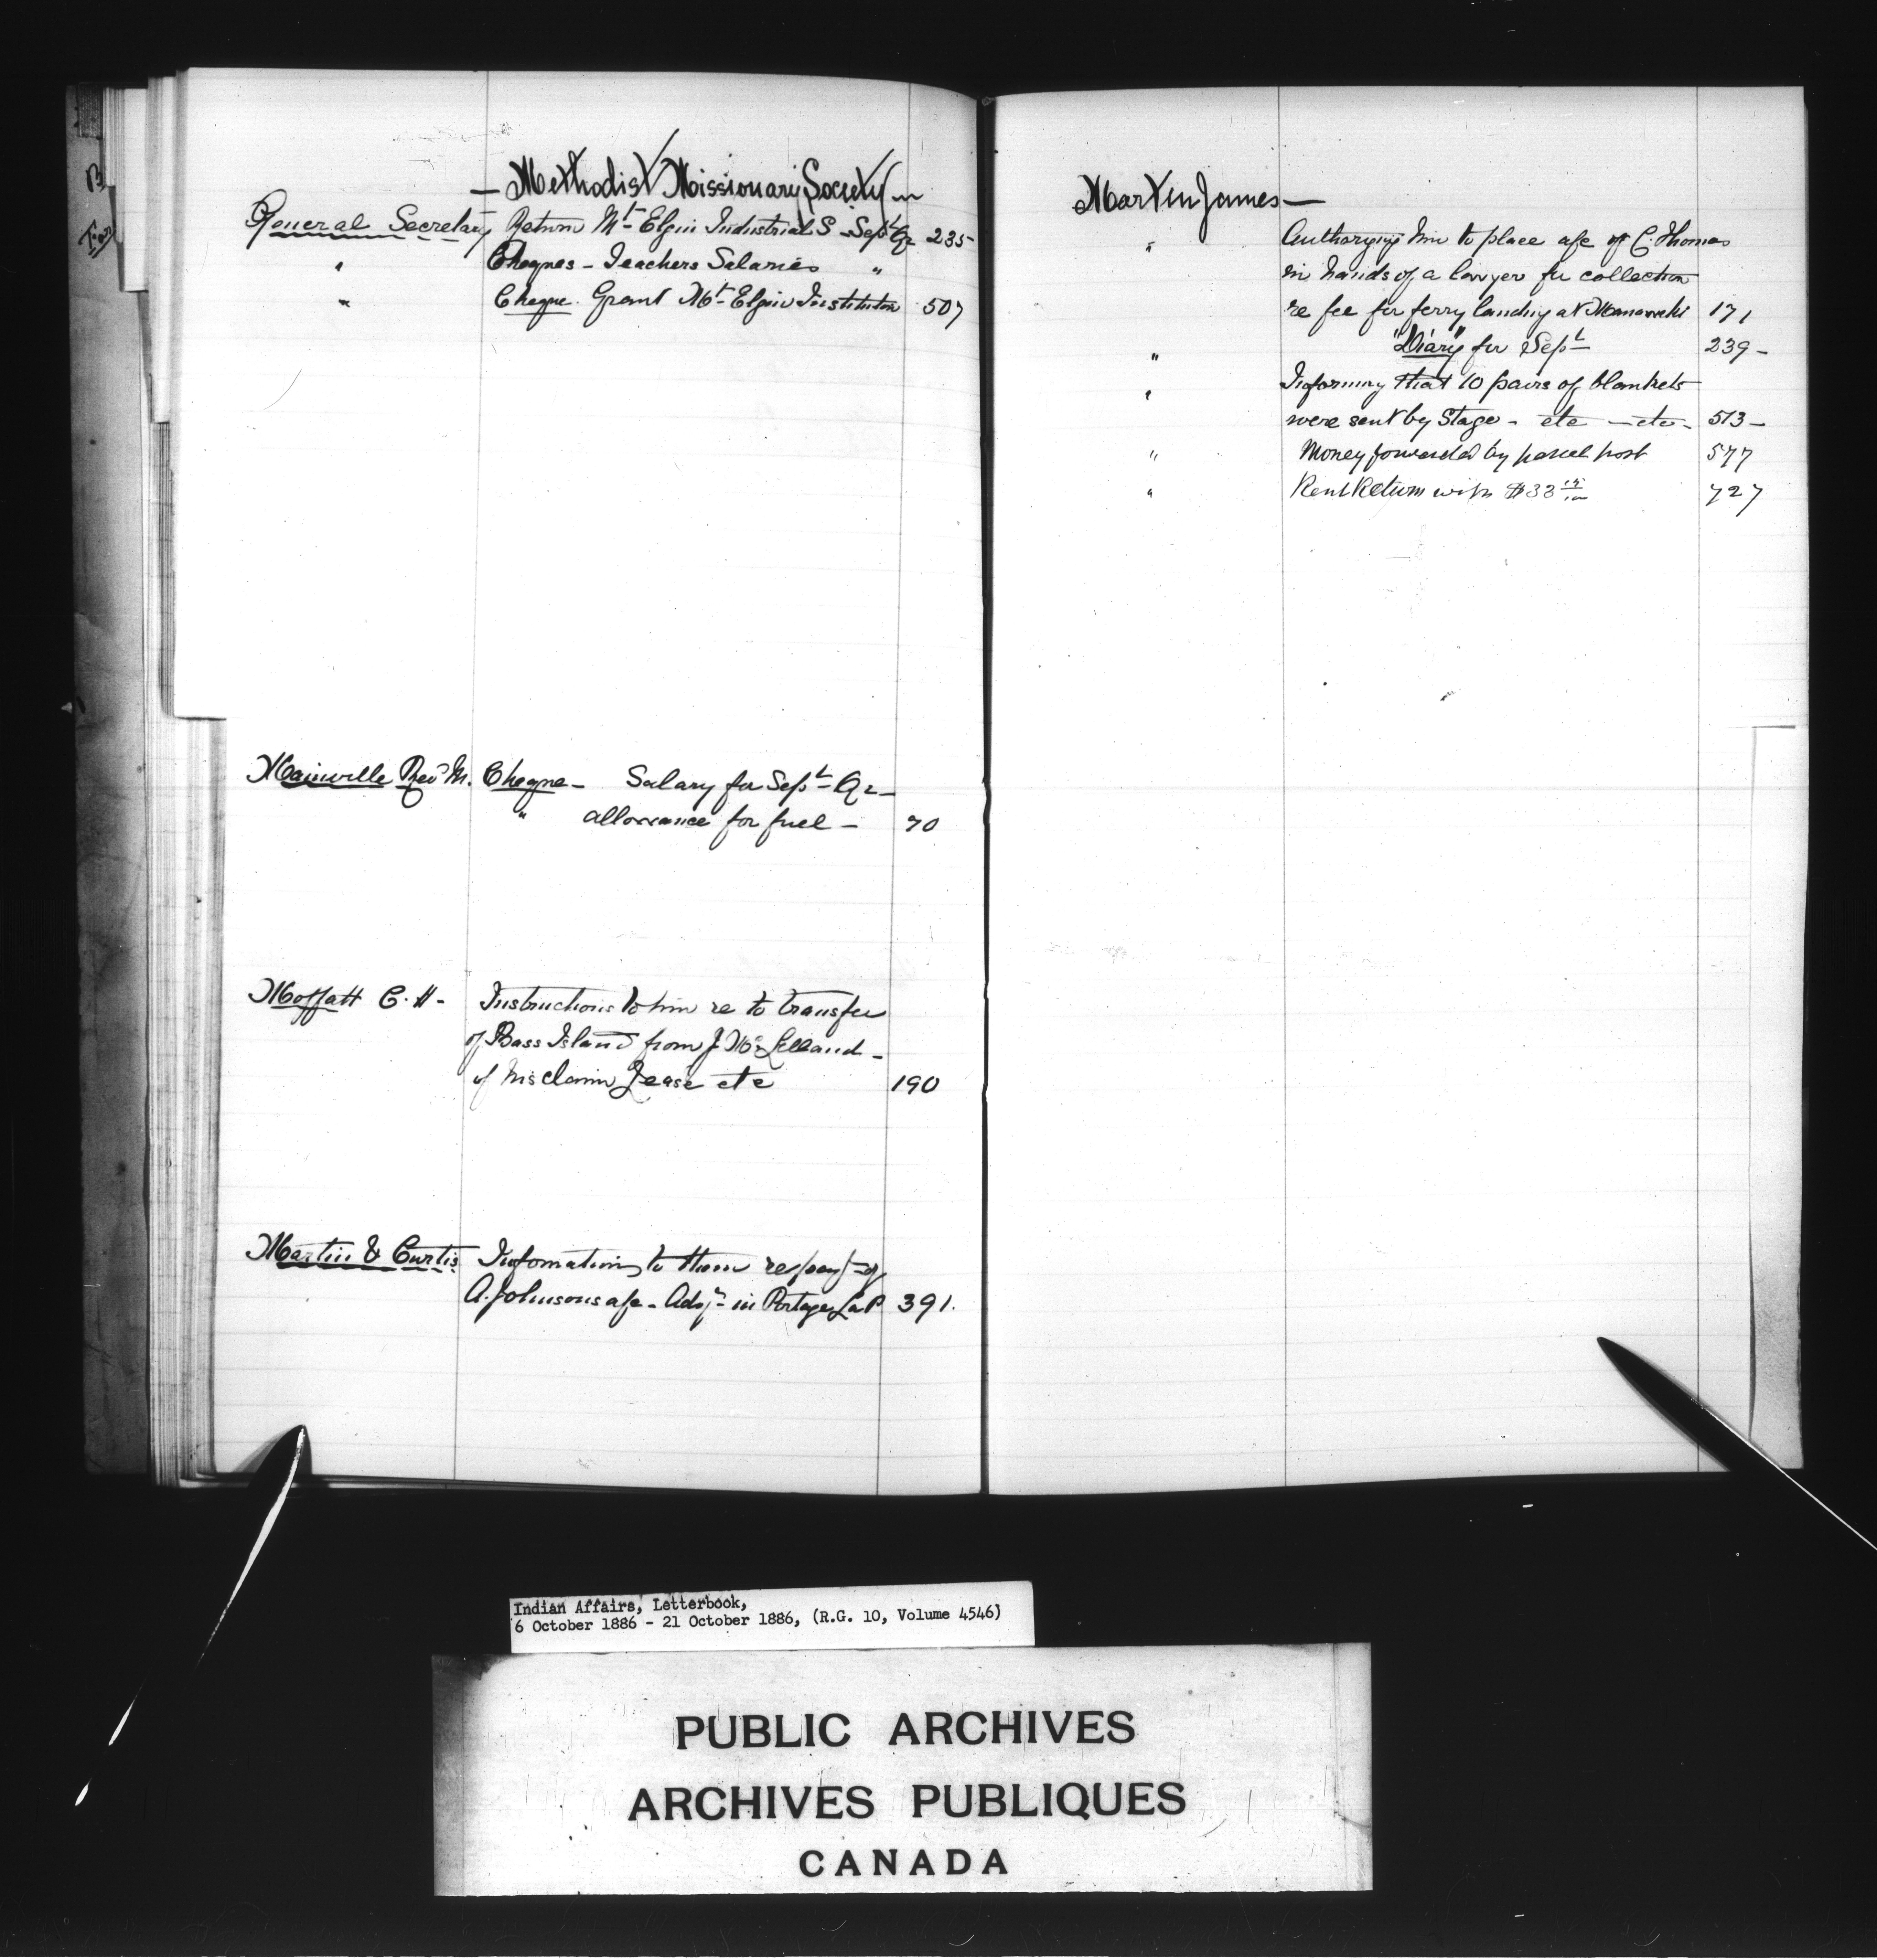 — Methodist Missionary Society —
General Secretary Return Mt Elgin Industrial S - Sept Qr 235-
" Cheques - Teachers Salaries "
" Cheque. Grant Mt Elgin Institution 507
Mainville Revd M. Cheque - Salary for Sept Qr -
" allowance for fuel - 70
Moffatt C. H - Instructions to him re to transfer
of Bass Island from J. McLelland -
of his claim Lease etc 190
Martin & Curtis Infomation to them re payt of
A. Johnsons a/c - Adjt in Portage La P 391.
Martin James —
" Authorizing him to place a/c of C. Thomas
in hands of a lawyer for collection
re fee for ferry landing at Manawaki 171
" "Diary" for Sept 239 -
" Informing that 10 pairs of blankets
were sent by Stage - etc - etc - 513 -
" Money forwarded by parcel post 577
" Rent Return with $33 727
B
Indian Affairs, Letterbook,
6 October 1886 - 21 October 1886, (R.G. 10, Volume 4546)
PUBLIC ARCHIVES
ARCHIVES PUBLIQUES
CANADA